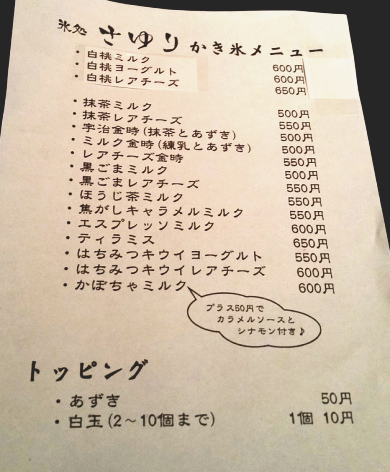 氷処 さゆり かき氷メニュー
・白桃ミルク 600円
・白桃ヨーグルト 600円
・白桃レアチーズ 650円
・抹茶ミルク 500円
・抹茶レアチーズ 550円
・宇治金時(抹茶とあずき) 500円
・ミルク金時(練乳とあずき) 500円
・レアチーズ金時 550円
・黒ごまミルク 500円
・黒ごまレアチーズ 550円
・ほうじ茶ミルク 550円
・焦がしキャラメルミルク 550円
・エスプレッソミルク 600円
・ティラミス 650円
・はちみつキウイヨーグルト 550円
・はちみつキウイレアチーズ 600円
・かぼちゃミルク 600円
プラス50円で
カラメルソースと
シナモン付き♪
トッピング
・あずき 50円
・白玉(2～10個まで) 1個 10円